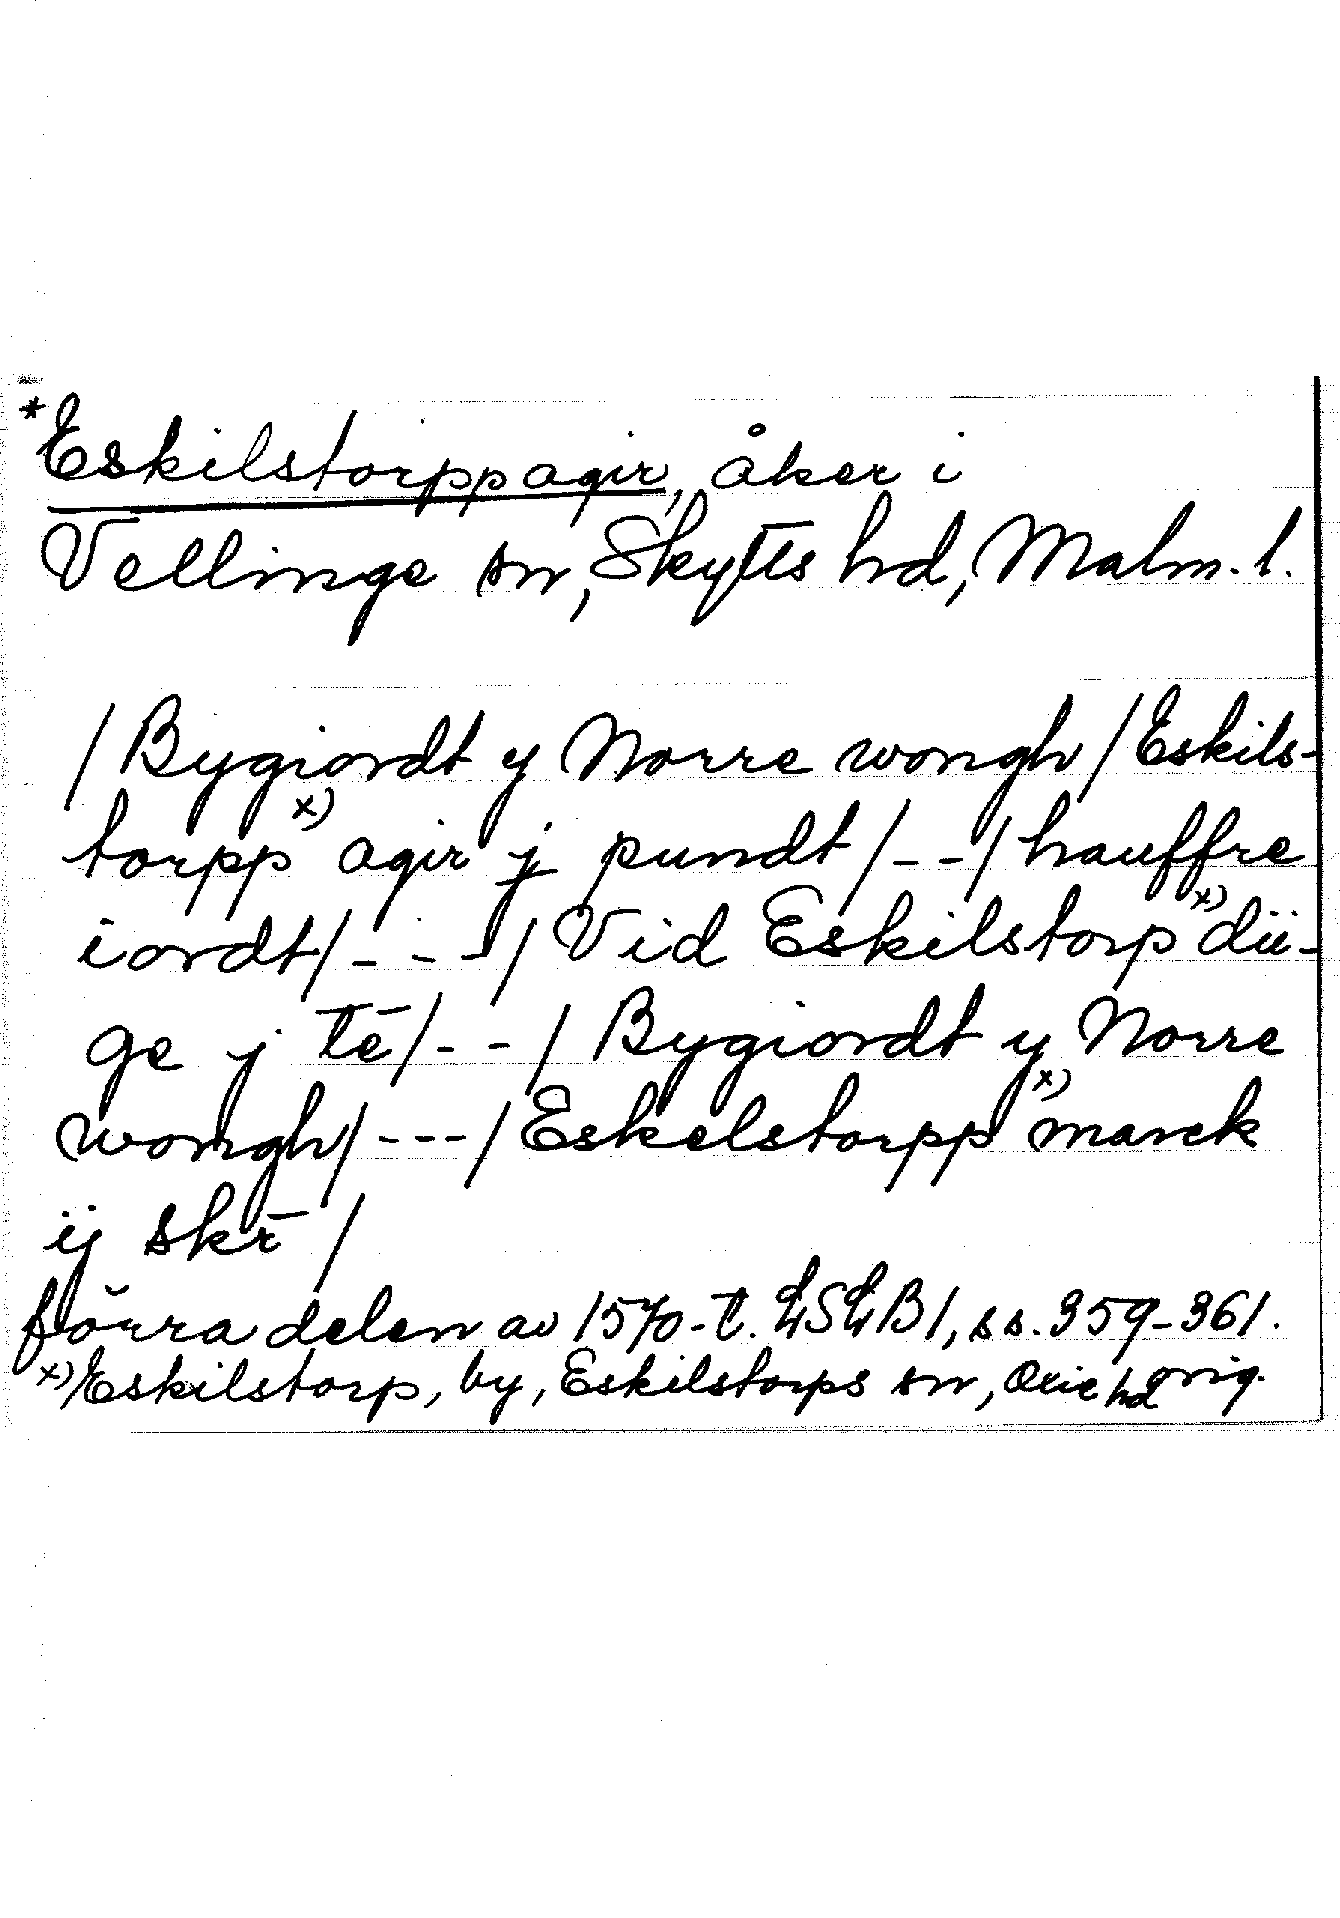 *Eskilstorpp agir, åker i
Vellinge sn, Skytts hd, Malm. l.
/Bygiordt y Norre wongh/Eskils-
torpp x) agir j pundt/--/hauffre
iordt/---/Vid Eskilstorp x) dii-
ge j tē/--/Bygiordt y Norre
wongh/---/Eskelstorpp x) marck
ij skr̄/
förra delen av 1570-t. LSLB1, ss. 359-361.
x) Eskilstorp, by, Eskilstorps sn, Oxie hd orig.